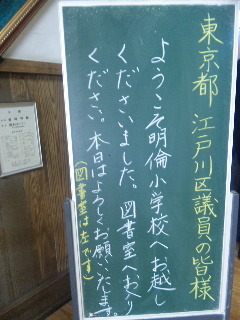 東京都 江戸川区議員の皆様
ようこそ明倫小学校へお越し
くださいました。図書室へお入り
ください。本日はよろしくお願いいたします。
(図書室は左です)